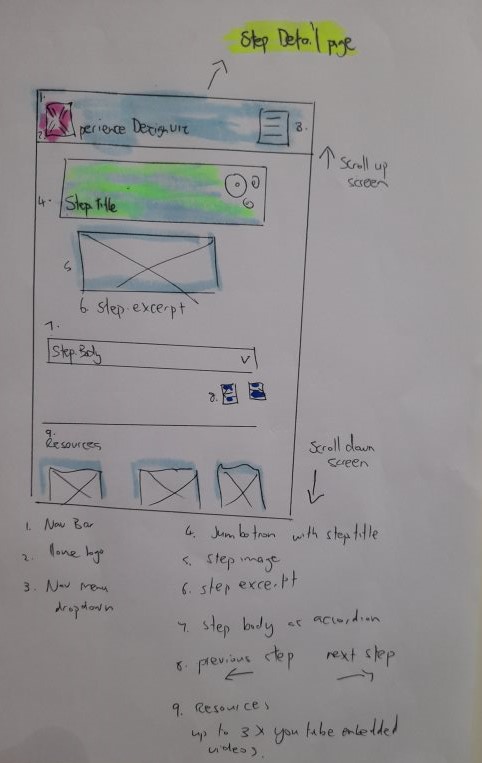 Step Detail page
1.
2.
perience Design
3.
Scroll up
screen
4.
Step.title
5
6. Step.excerpt
7.
Step.Body
8.
9.
Resources
Scroll down
screen
1. Nav Bar
2. Home logo
3. Nav menu
dropdown
4. Jumbotron with step title
5. step image
6. step excerpt
7. step body as accordion
8. previous step next step
9. Resources
up to 3 x youtube embedded
videos.